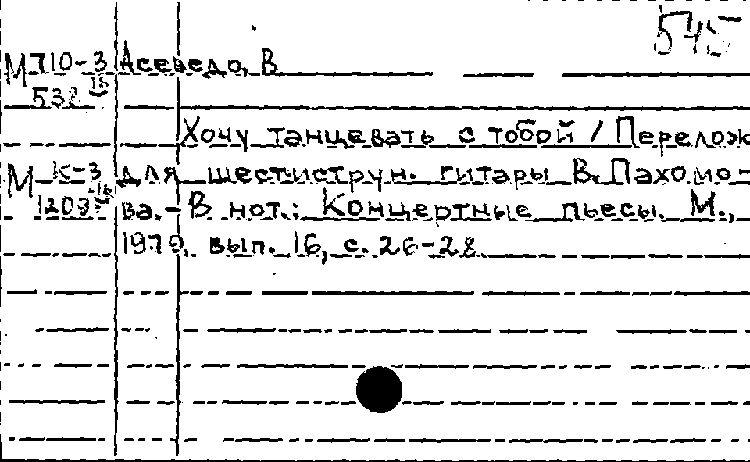 545
М 710-3 Асеведо, В
538 16
Хочу танцевать с тобой / Перелож
М К-3 для шестиструн. гитары В. Пахомо-
1203 16 ва. - В нот.: Концертные пьесы. М.,
1979, вып. 16, с. 26-28